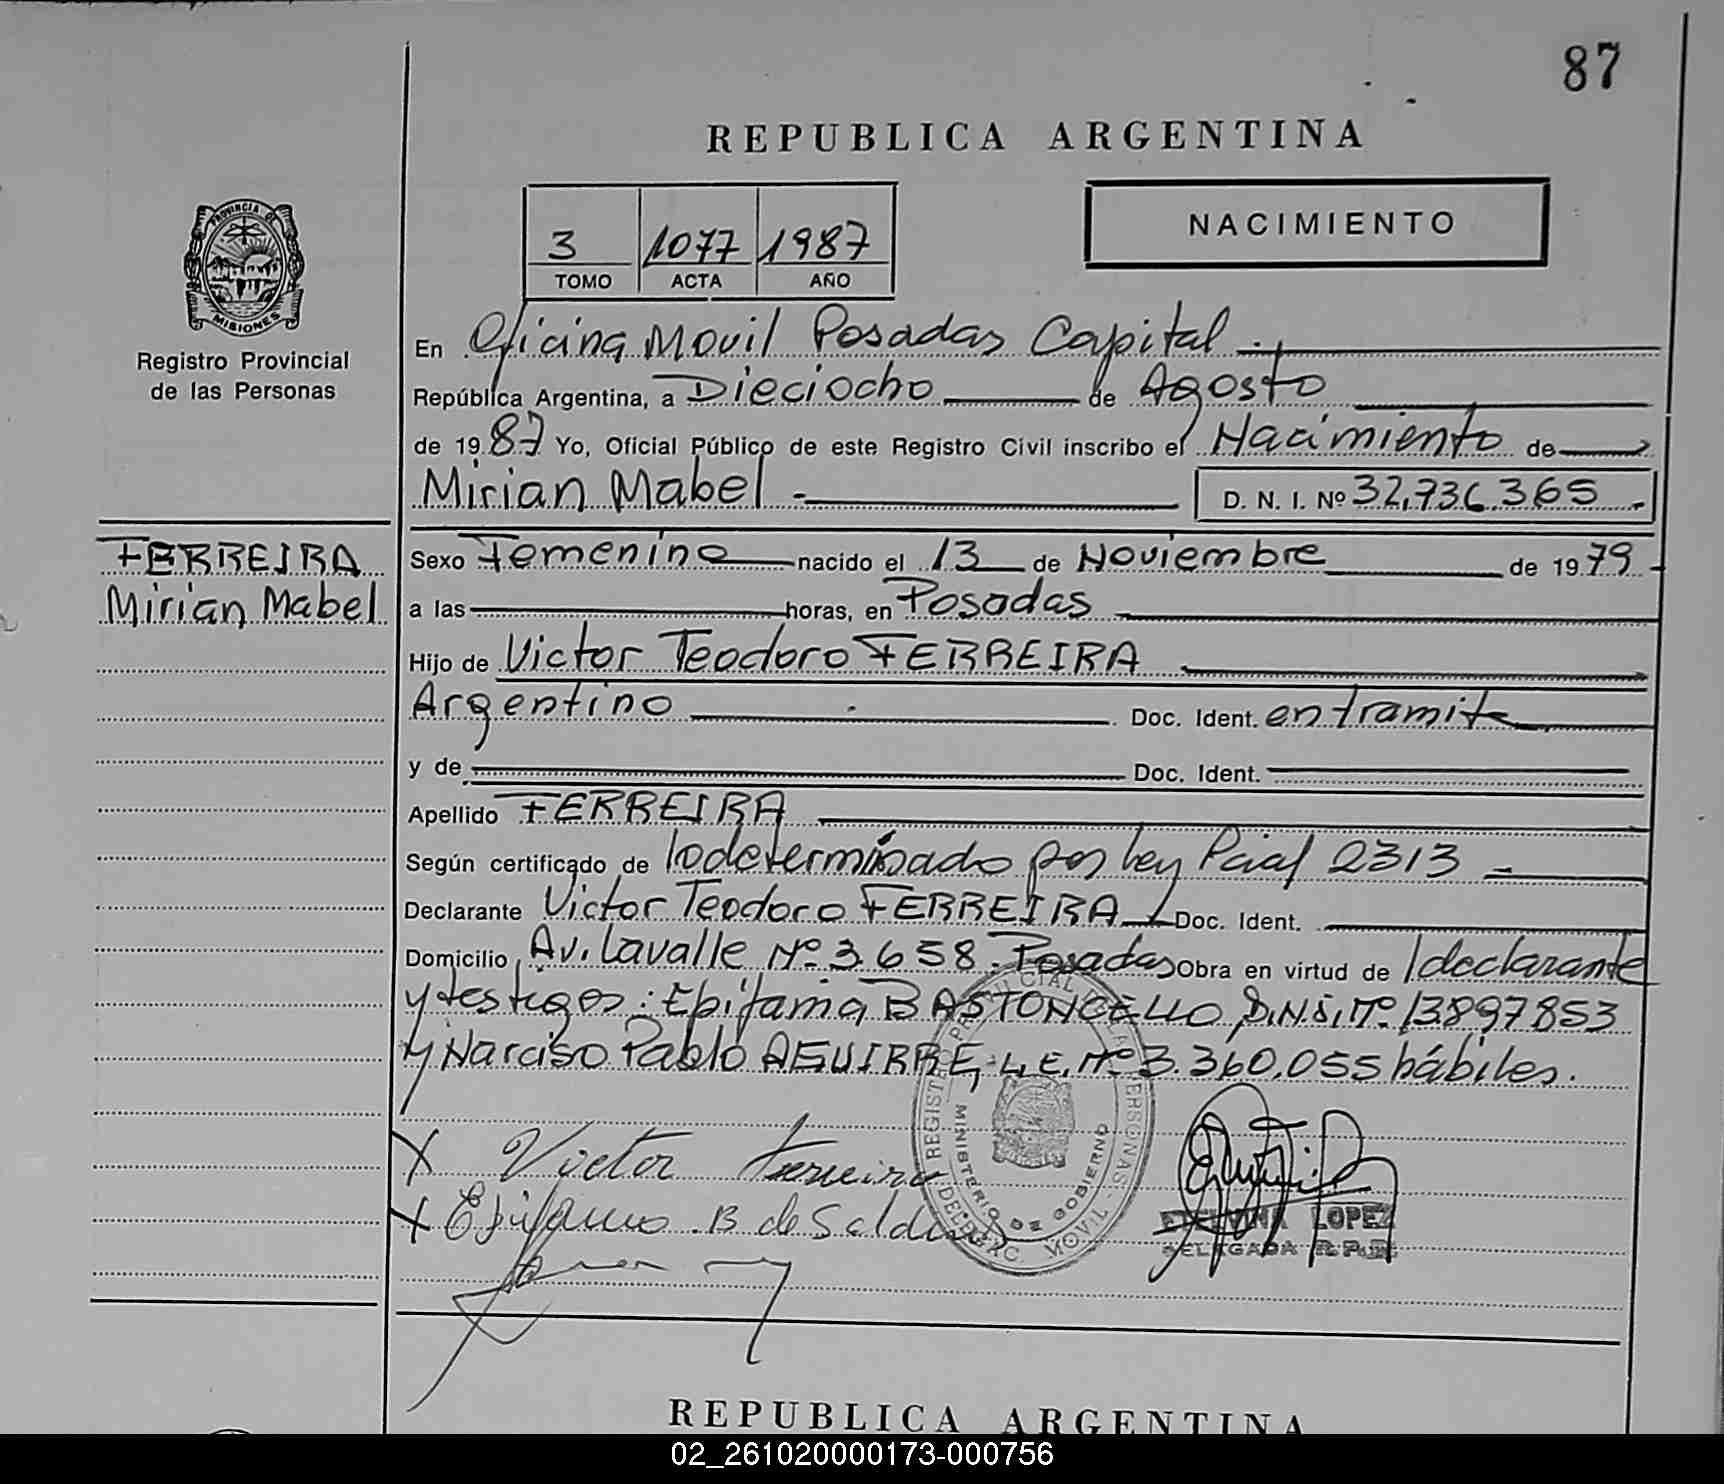 87
REPUBLICA ARGENTINA
3 1077 1987
TOMO ACTA AÑO
NACIMIENTO
PROVINCIA DE
MISIONES
Registro Provincial
de las Personas
En Oficina Movil Posadas Capital
República Argentina, a Dieciocho de Agosto
de 1987 Yo, Oficial Público de este Registro Civil inscribo el Nacimiento de
Mirian Mabel D. N. I. Nº 32,736.365
FERREIRA
Mirian Mabel
Sexo Femenino nacido el 13 de Noviembre de 1979
a las horas, en Posadas
Hijo de Victor Teodoro FERREIRA
Argentino Doc. Ident. en tramite
y de Doc. Ident.
Apellido FERREIRA
Según certificado de Iodeterminado por Ley Pcial 2313
Declarante Victor Teodoro FERREIRA Doc. Ident.
Domicilio Av. Lavalle Nº 3.658. Posadas Obra en virtud de l declarante
y testigos: Epifania BASTONCELLO D.N.I. Nº 13897853
y Narciso Pablo AGUIRRE, L.E. Nº 3.360.055 hábiles.
Victor Ferreira
B de Saldi
REGISTRO PROVINCIAL PERSONAS
MINISTERIO DE GOBIERNO
DELEGAC. MOVIL
ETELVINA LOPEZ
DELEGADA R.P.P.
REPUBLICA ARGENTINA
02_261020000173-000756